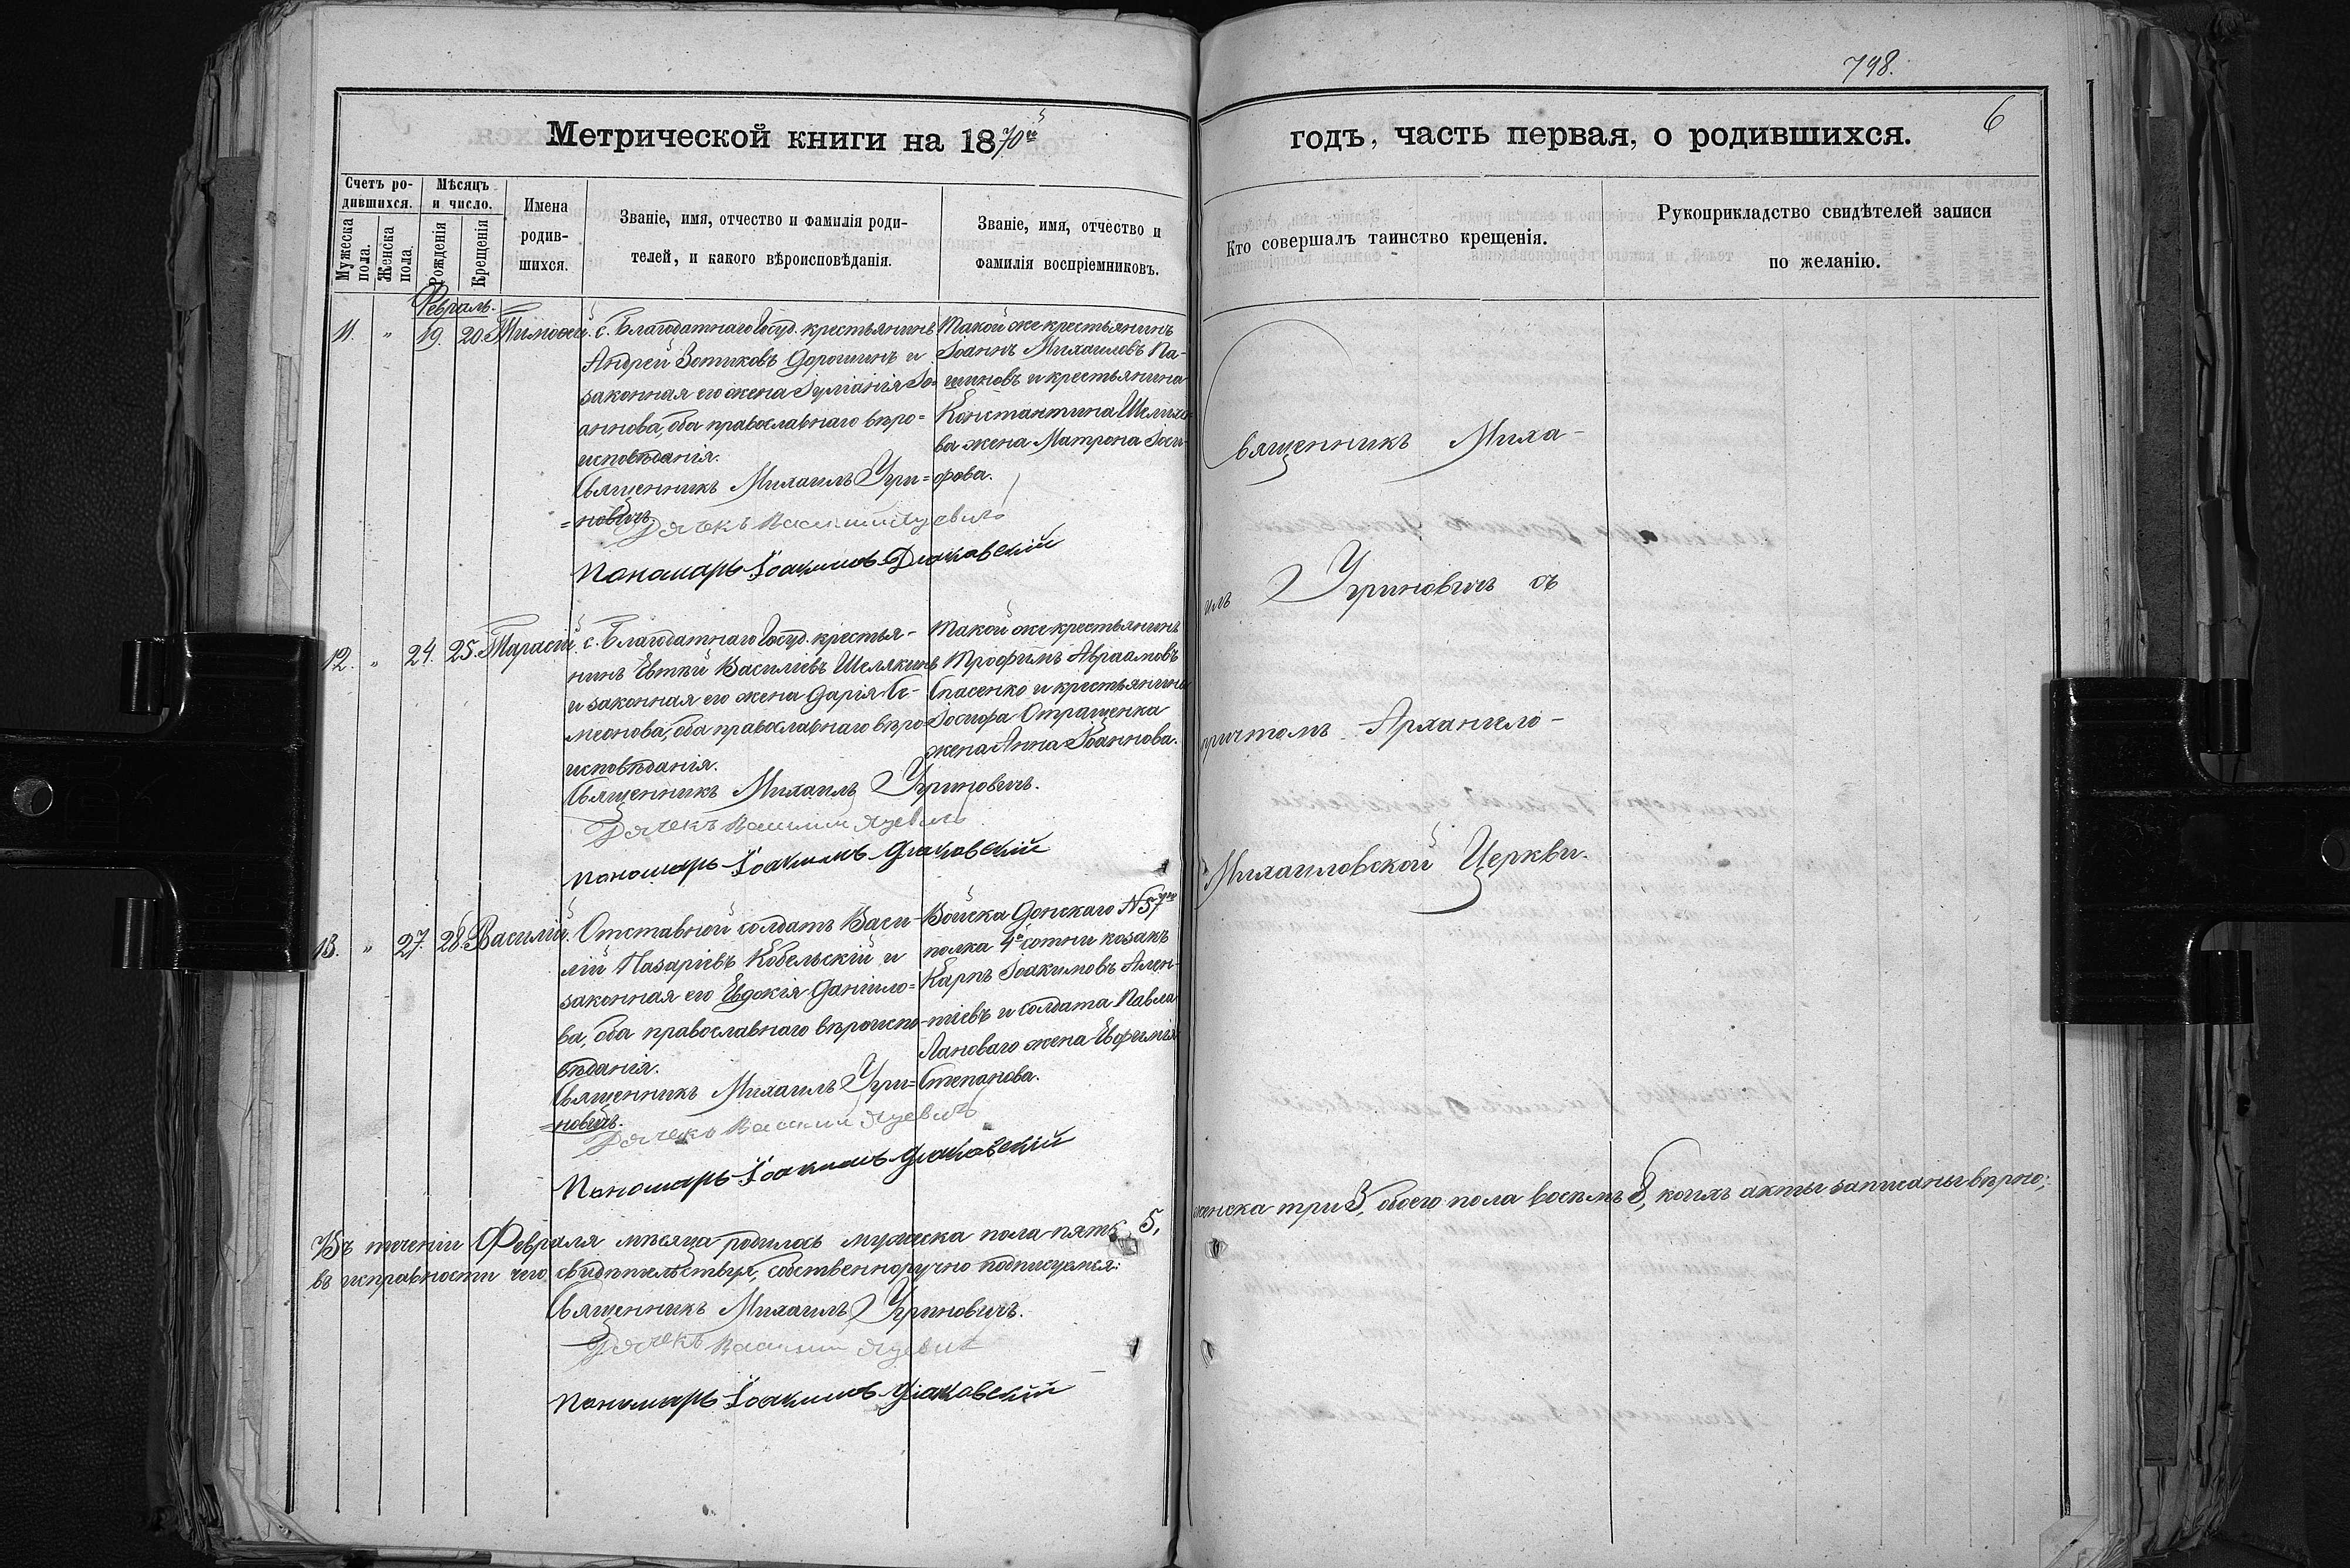 798.
6
Метрической книги на 1870й
годъ, часть первая, о родившихся.
Счетъ ро-
дившихся.
Мужеска пола.
Женска пола.
Мѣсяцъ
и число.
Рожденія
Крещенія
Имена
родив-
шихся.
Званіе, имя, отчество и фамилія роди-
телей, и какого вѣроисповѣданія.
Званіе, имя, отчество и
фамилія воспріемниковъ.
Кто совершалъ таинство крещенія.
Рукоприкладство свидѣтелей записи
по желанію.
Февраль.
11. " 19. 20. Тимоѳей.
с. Благодатнаго Госуд. крестьянинъ
Андрей Зотиковъ Дорошинъ и
законная его жена Іуліанія Іо-
аннова, оба православнаго вѣро=
исповѣданія.
Священникъ Михаилъ Угри=
=новичъ.
Дячекъ Василий Яцевичъ
Пономарь Іоакимъ Діаковскій
Такой же крестьянинъ
Іоаннъ Михаиловъ Па-
шиновъ и крестьянина
Константина Шелихо-
ва жена Матрона Іоси-
фова.
12. " 24. 25. Тарасій.
с. Благодатнаго Госуд. крестья-
нинъ Евтѣй Василіевъ Шелякинъ
и законная его жена Дарія Си-
меонова, оба православнаго вѣро-
исповѣданія.
Священникъ Михаилъ Угриновичъ.
Дячекъ Василий Яцевичъ
Пономарь Іоакимъ Діаковскій
Такой же крестьянинъ
Трофимъ Авраамовъ
Спасенко и крестьянина
Іосифа Отращенка
жена Анна Іоаннова.
13. " 27. 28. Василій.
Отставной солдатъ Васи-
лій Назаріевъ Кобельскій и
законная его Евдокія Даніило=
ва, оба православнаго вѣроиспо-
вѣданія.
Священникъ Михаилъ Угри=
=новичъ.
Дячекъ Василий Яцевичъ
Пономарь Іоакимъ Діаковскій
Войска Донскаго №57го
полка 4й сотни козакъ
Карпъ Іоакимовъ Ален-
тіевъ и солдата Павла
Лановаго жена Евфимія
Степанова.
Священникъ Миха-
илъ Угриновичъ съ
причтомъ Архангело-
Михаиловской Церкви.
Въ теченіи Февраля мѣсяца родилось мужеска пола пять 5, женска три 3, обоего пола восемь 8, коихъ акты записаны вѣрно;
въ исправности чего, свидѣтельствуя, собственноручно подписуемся:
Священникъ Михаилъ Угриновичъ.
Дячекъ Василий Яцевичъ
Пономарь Іоакимъ Діаковскій